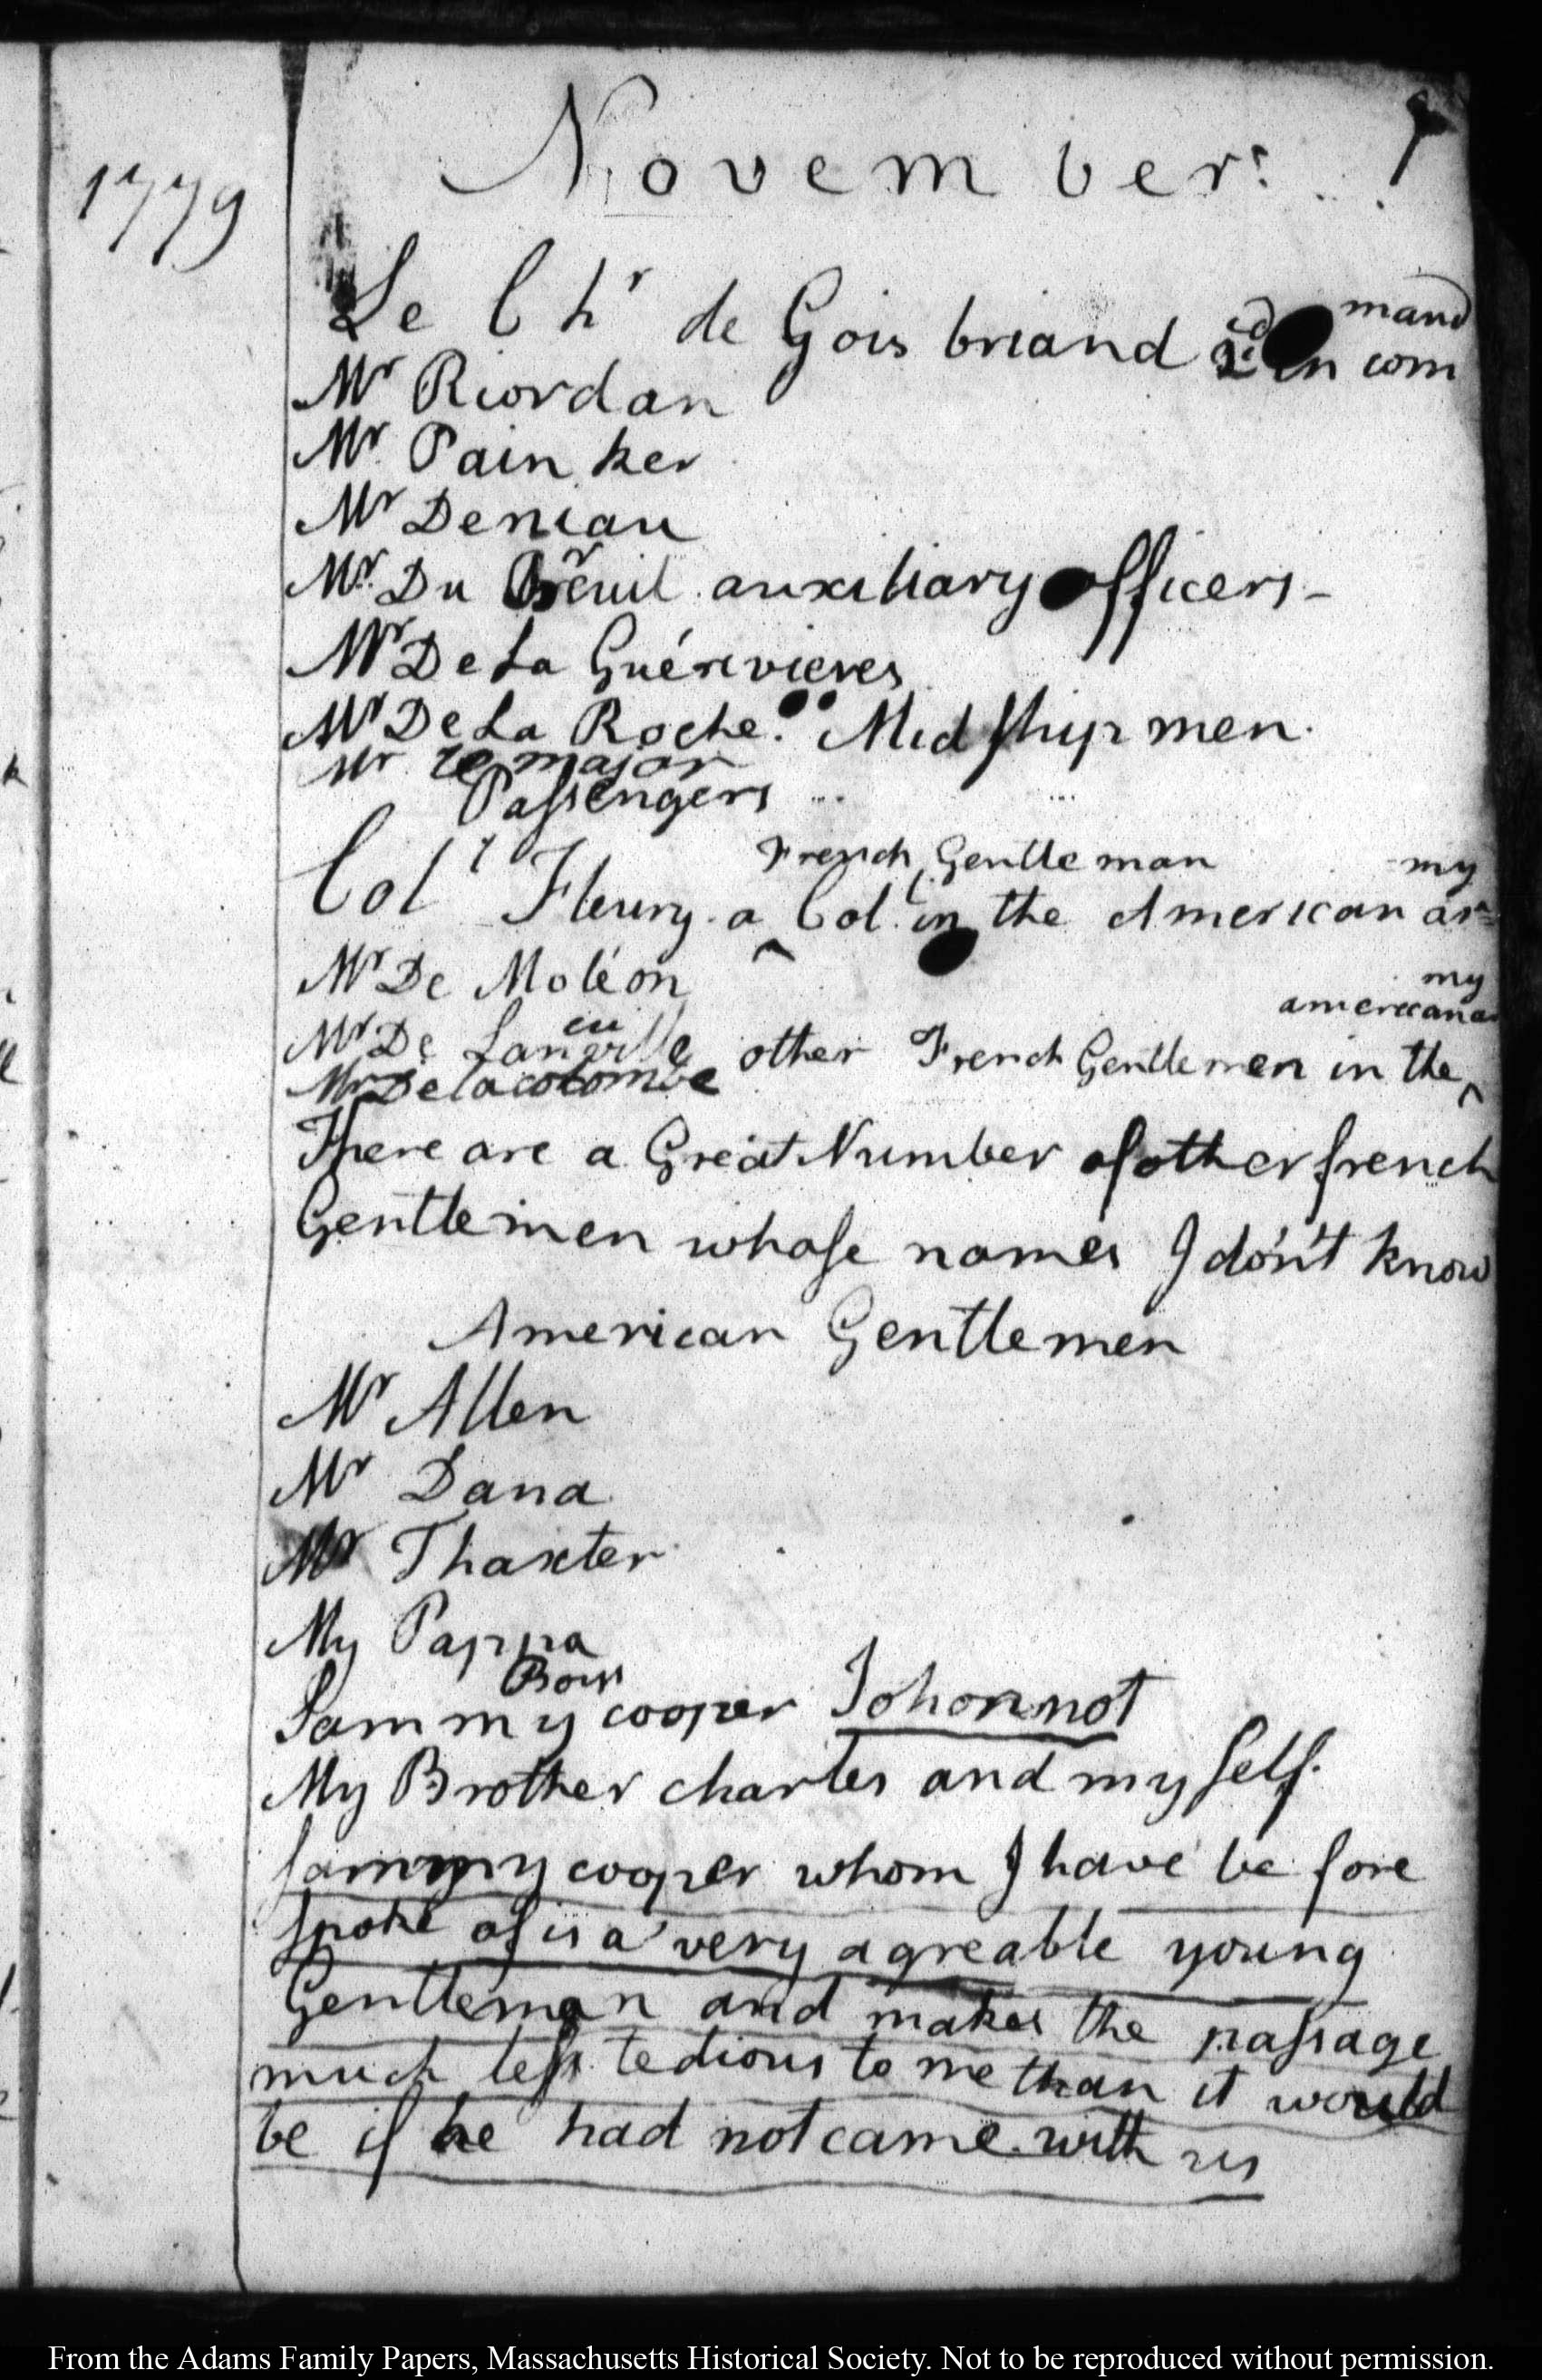 1779
November:
Le Chr de Goisbriand 2d in command
Mr Riordan
Mr Painker
Mr Deniau
Mr Du Breuil auxiliary officers-
Mr De La Guérivieres
Mr De La Roche. Midshipmen.
Mr le major
Passengers
Coll Fleury. a French Gentleman Col. in the American army
Mr De Moléon
Mr De Laneuville other French Gentlemen in the american army
Mr De la colombe
There are a Great Number of other french
Gentlemen whose names I don't know
American Gentlemen
Mr Allen
Mr Dana
Mr Thaxter
My Pappa
Boys
Sammy cooper Johonnot
My Brother charles and myself.
sammy cooper whom I have before
spoke of is a very agreable young
Gentleman and makes the passage
much less tedious to me than it would
be if he had not came with us
From the Adams Family Papers, Massachusetts Historical Society. Not to be reproduced without permission.